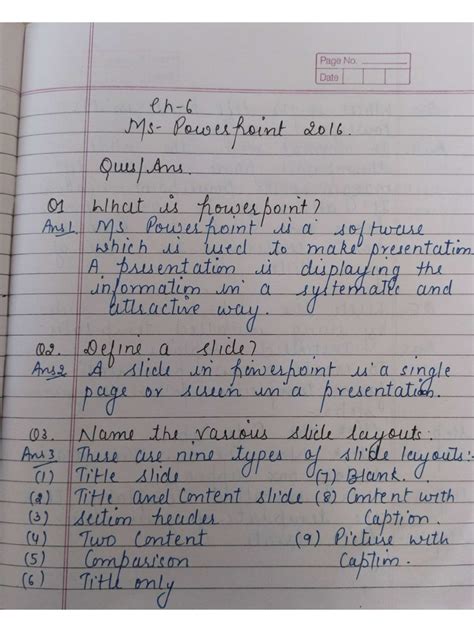 Page No.
Date
Ch-6
Ms-Powerpoint 2016.
Ques/Ans.
Q1 What is powerpoint?
Ans1. Ms Powerpoint is a software
which is used to make presentation.
A presentation is displaying the
information in a systematic and
attractive way.
Q2. Define a slide?
Ans2 A slide in powerpoint is a single
page or screen in a presentation.
Q3. Name the various slide layouts.
Ans3 There are nine types of slide layouts:-
(1) Title slide (7) Blank.
(2) Title and Content slide (8) Content with
(3) section header Caption.
(4) Two Content (9) Picture with
(5) Comparison Caption.
(6) Title only